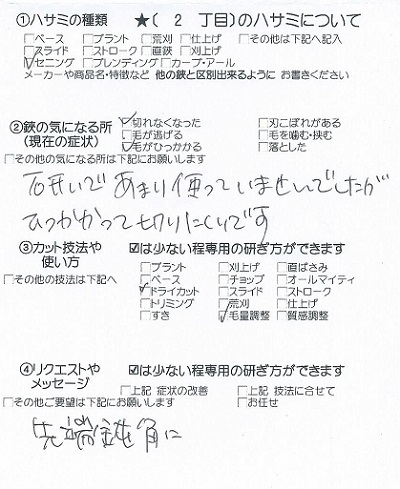 ①ハサミの種類 ★( 2 丁目)のハサミについて
□ベース □プラント □荒刈 □仕上げ □その他は下記へ記入
□スライド □ストローク □直鋏 □刈上げ
☑セニング □ブレンディング □カーブ・アール
メーカーや商品名・特徴など 他の鋏と区別出来るように お書きください
②鋏の気になる所
(現在の症状)
☑切れなくなった □刃こぼれがある
□毛が逃げる □毛を噛む・挟む
☑毛がひっかかる □落とした
□その他の気になる所は下記にお願いします
研いで あまり使っていませんでしたが
ひっかかって切りにくいです
③カット技法や
使い方
☑は少ない程専用の研ぎ方ができます
□その他の技法は下記へ
□プラント □刈上げ □直ばさみ
□ベース □チョップ □オールマイティ
☑ドライカット □スライド □ストローク
□トリミング □荒刈 □仕上げ
□すき ☑毛量調整 □質感調整
④リクエストや
メッセージ
☑は少ない程専用の研ぎ方ができます
□上記 症状の改善 □上記 技法に合せて
□その他ご要望は下記にお願いします □お任せ
先端鈍角に